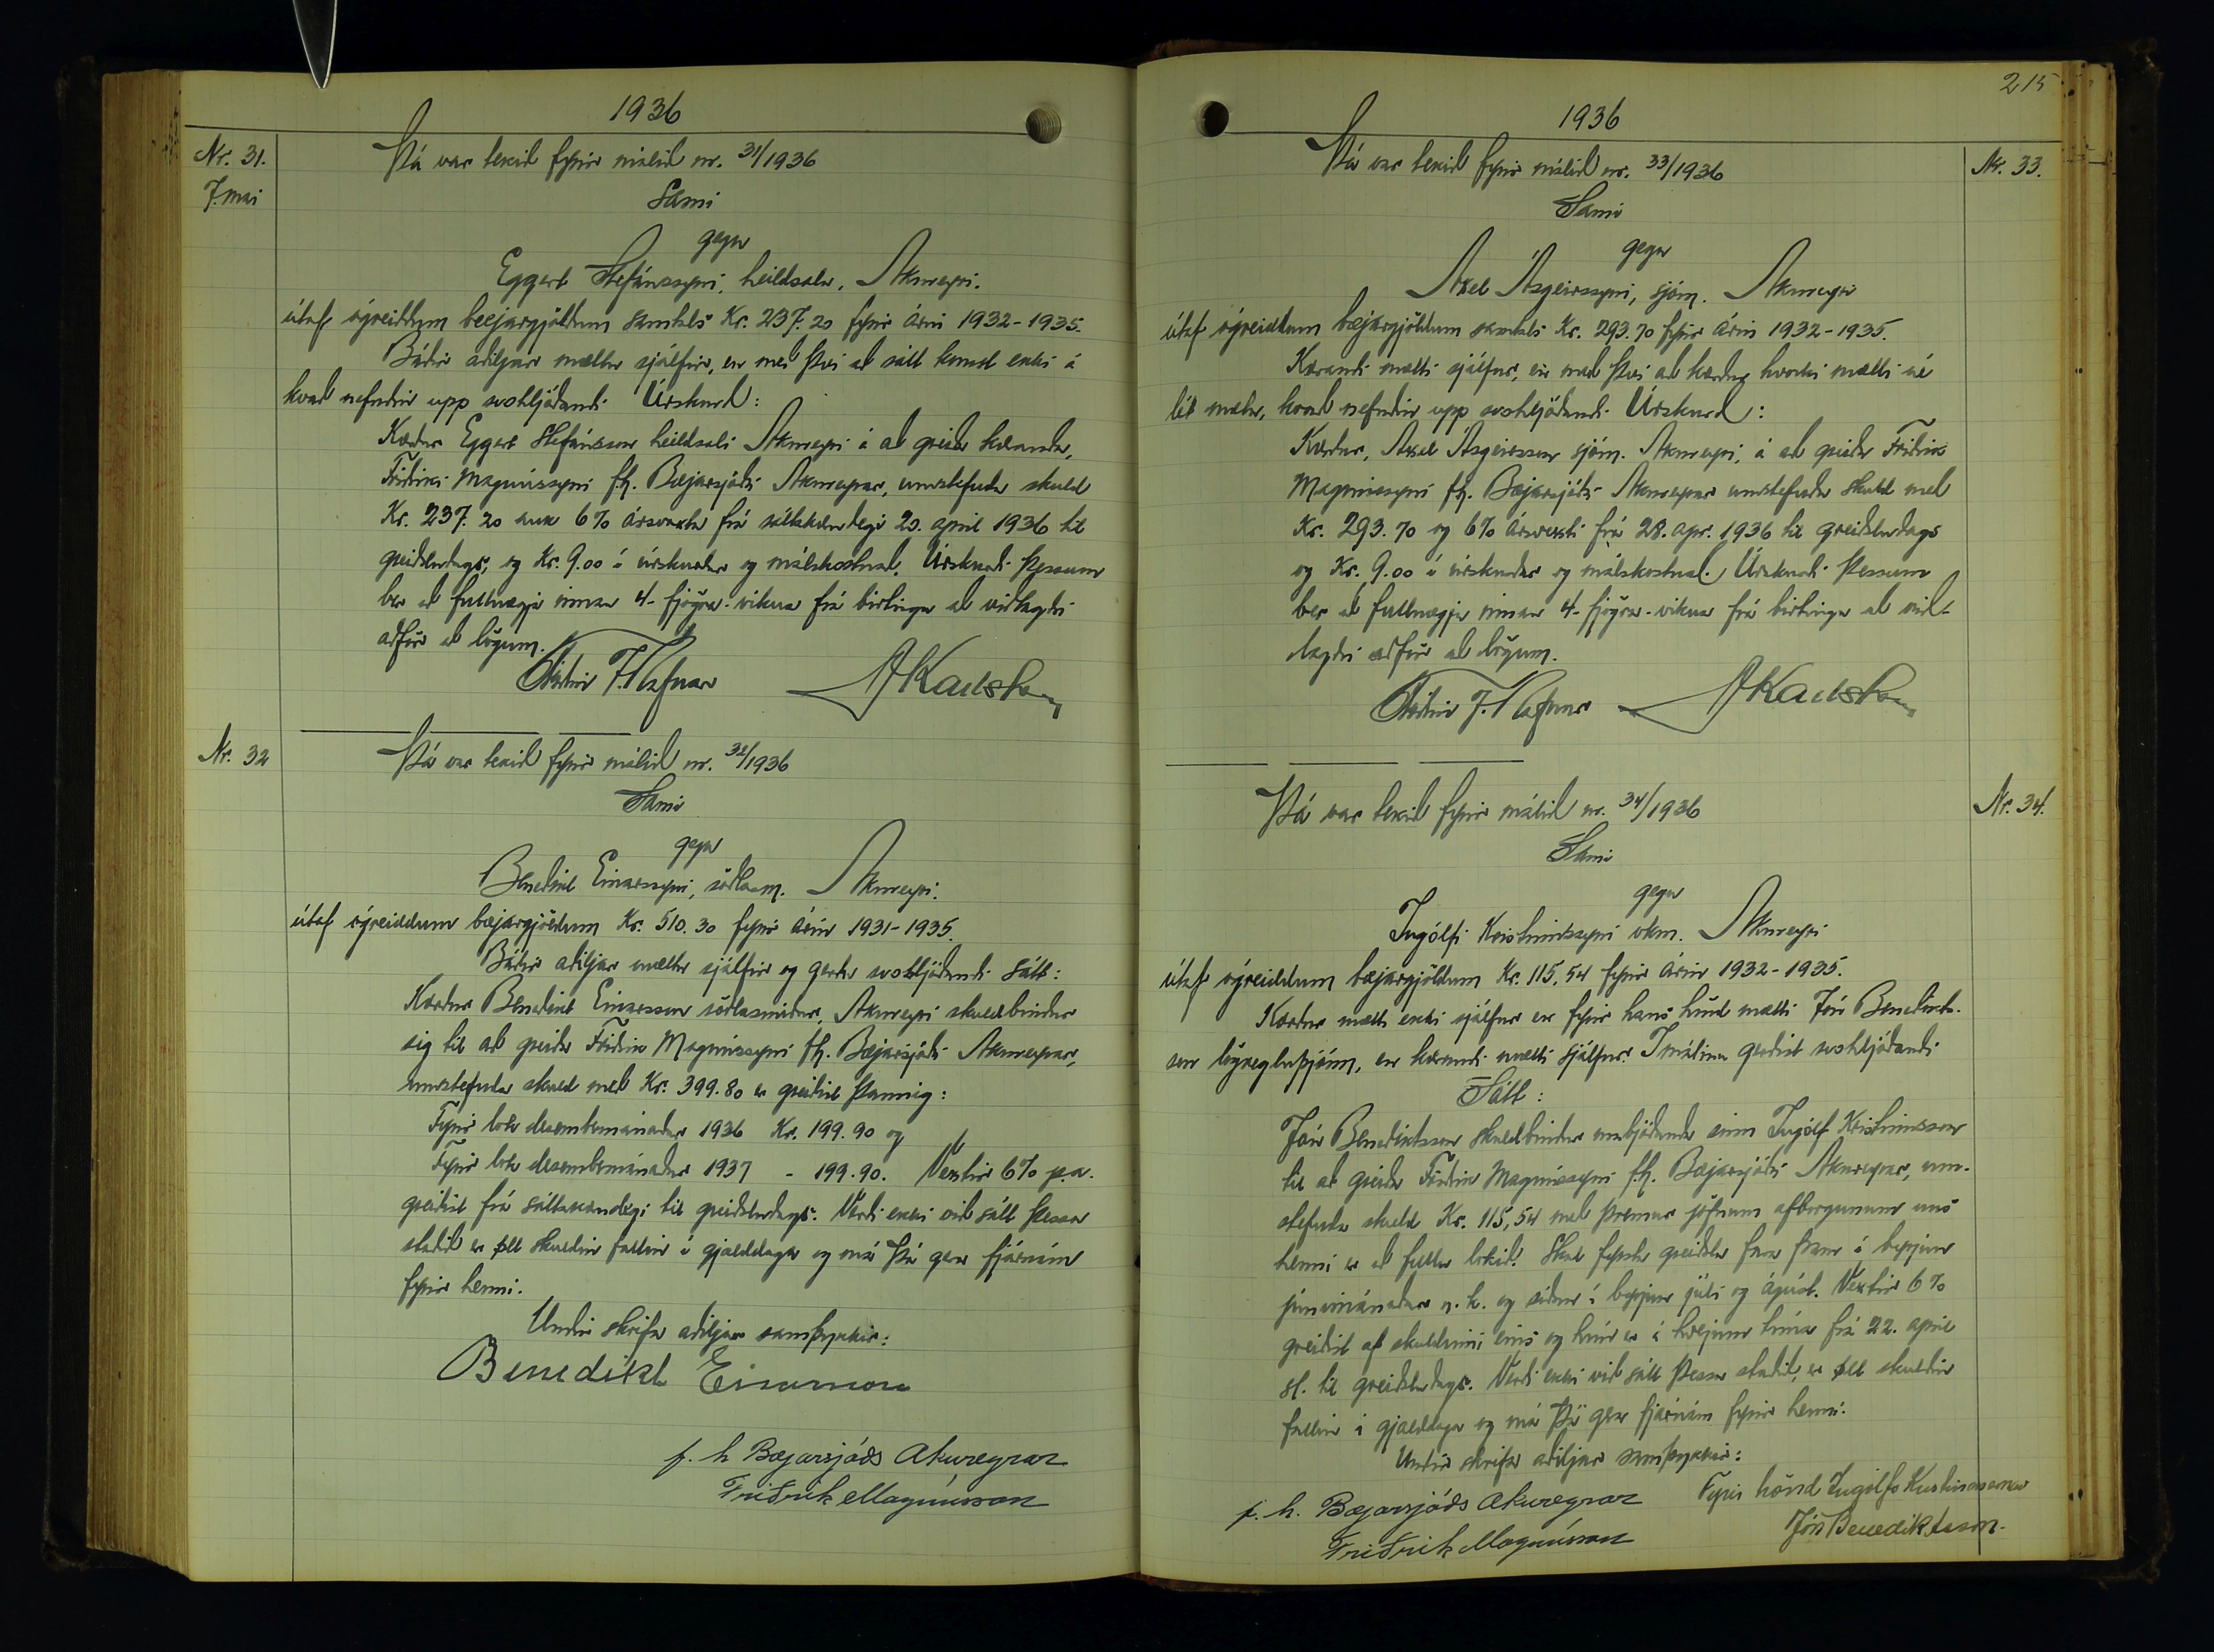 1936
Nr. 31.
7. maí
Þá var tekið fyrir málið nr. 31/1936
Sami
gegn
Eggert Stefánssyni, heildsala, Akureyri.
útaf ógreiddum bæjargjöldum samtals Kr. 237.20 fyrir árin 1932-1935.
Báðir aðiljar mættu sjálfir, en með því að sátt komst ekki á
kvað nefndin upp svohljóðandi Úrskurð:
Kærður Eggert Stefánsson heildsali Akureyri á að greiða kæranda,
Friðriki Magnússyni f.h. Bæjarsjóðs Akureyrar, umstefnda skuld
Kr. 237.20 auk 6% ársvaxta frá sáttakærudegi 20. apríl 1936 til
greiðsludags, og Kr. 9.00 í úrskurðar og málskostnað. Úrskurði þessum
ber að fullnægja innan 4-fjögra-vikna frá birtingu að viðlagðri
aðför að lögum.
Friðrik J. Rafnar
Nr. 32
Þá var tekið fyrir málið nr. 32/1936
Sami
gegn
Benedikt Einarssyni, söðlasm. Akureyri.
útaf ógreiddum bæjargjöldum Kr. 510.30 fyrir árin 1931-1935.
Báðir aðiljar mættu sjálfir og gerðu svohljóðandi Sátt:
Kærður Benedikt Einarsson söðlasmiður, Akureyri skuldbindur
sig til að greiða Friðrik Magnússyni fh. Bæjarsjóðs Akureyrar,
umstefnda skuld með Kr. 399.80 er greiðist þannig:
Fyrir lok desembermánaðar 1936 Kr. 199.90 og
Fyrir lok desembermánaðar 1937 - 199.90. Vextir 6% p.a.
greiðist frá sáttakærudegi til greiðsludags. Verði ekki við sátt þessa
staðið er öll skuldin fallin í gjalddaga og má þá gera fjárnám
fyrir henni.
Undir skrifa aðiljar samþykkir:
Benedikt Einarsson
f. h Bæjarsjóðs Akureyrar
Friðrik Magnússon
215
1936
Nr. 33.
Þá var tekið fyrir málið nr. 33/1936
Sami
gegn
Axel Ásgeirssyni, sjóm. Akureyri
útaf ógreiddum bæjargjöldum samtals Kr. 293.70 fyrir árin 1932-1935.
Kærandi mætti sjálfur, en með því að kærður hvorki mætti né
lét mæta, kvað nefndin upp svohljóðandi Úrskurð:
Kærður, Axel Ásgeirsson sjóm. Akureyri, á að greiða Friðrik
Magnússyni fh. Bæjarsjóðs Akureyrar umstefnda skuld með
Kr. 293.70 og 6% ársvexti frá 28. apr. 1936 til greiðsludags
og Kr. 9.00 í úrskurðar og málskostnað. Úrskurði þessum
ber að fullnægja innan 4-fjögra-vikna frá birtingu að við-
lagðri aðför að lögum.
Friðrik J. Rafnar
Nr. 34.
Þá var tekið fyrir málið nr. 34/1936
Sami
gegn
Ingólfi Kristinssyni vkm. Akureyri
útaf ógreiddum bæjargjöldum Kr. 115.54 fyrir árin 1932-1935.
Kærður mætti ekki sjálfur en fyrir hans hönd mætti Jón Benedikts-
son lögregluþjónn, en kærandi mætti sjálfur. Í málinu gerðist svohljóðandi
Sátt:
Jón Benediktsson skuldbindur umbjóðanda sinn Ingólf Kristinsson
til að greiða Friðrik Magnússyni f.h. Bæjarsjóðs Akureyrar, um-
stefnda skuld Kr. 115,54 með þremur jöfnum afborgunum uns
henni er að fullu lokið. Skal fyrsta greiðsla fara fram í byrjun
júnímánaðar n.k. og síðan í byrjun júlí og ágúst. Vextir 6%
greiðist af skuldinni eins og hún er á hverjum tíma frá 22. apríl
sl. til greiðsludags. Verði ekki við sátt þessa staðið, er öll skuldin
fallin í gjalddaga og má þá gera fjárnám fyrir henni.
Undir skrifa aðiljar samþykkir:
f. h. Bæjarsjóðs Akureyrar
Friðrik Magnússon
Fyrir hönd Ingólfs Kristinssonar
Jón Benediktsson.